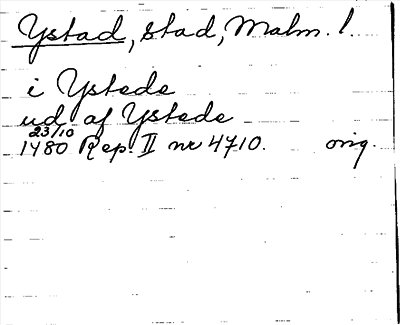 Ystad, stad, Malm. l.
i Ystede
ud af Ystede
23/10
1480 Rep. II nr 4710. orig.